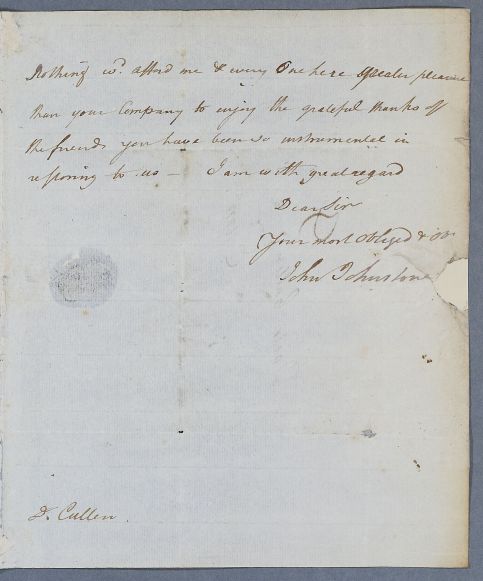 Nothing wd. afford me & every One here greater pleasure
than your Company to enjoy the grateful thanks off
the friends you have been so instrumental in
restoring to us — I am with great regard
Dear Sir
Your most obliged &
John Johnstone
Dr. Cullen.